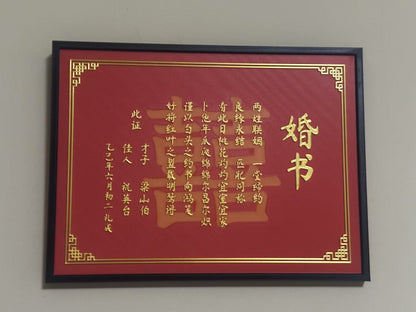 婚书
两姓联姻 一堂缔约
良缘永结 匹配同称
看此日桃花灼灼宜室宜家
卜他年瓜瓞绵绵尔昌尔炽
谨以白头之约书向鸿笺
好将红叶之盟载明鸳谱
此证
才子 梁山伯
佳人 祝英台
乙巳年六月初二礼成
囍